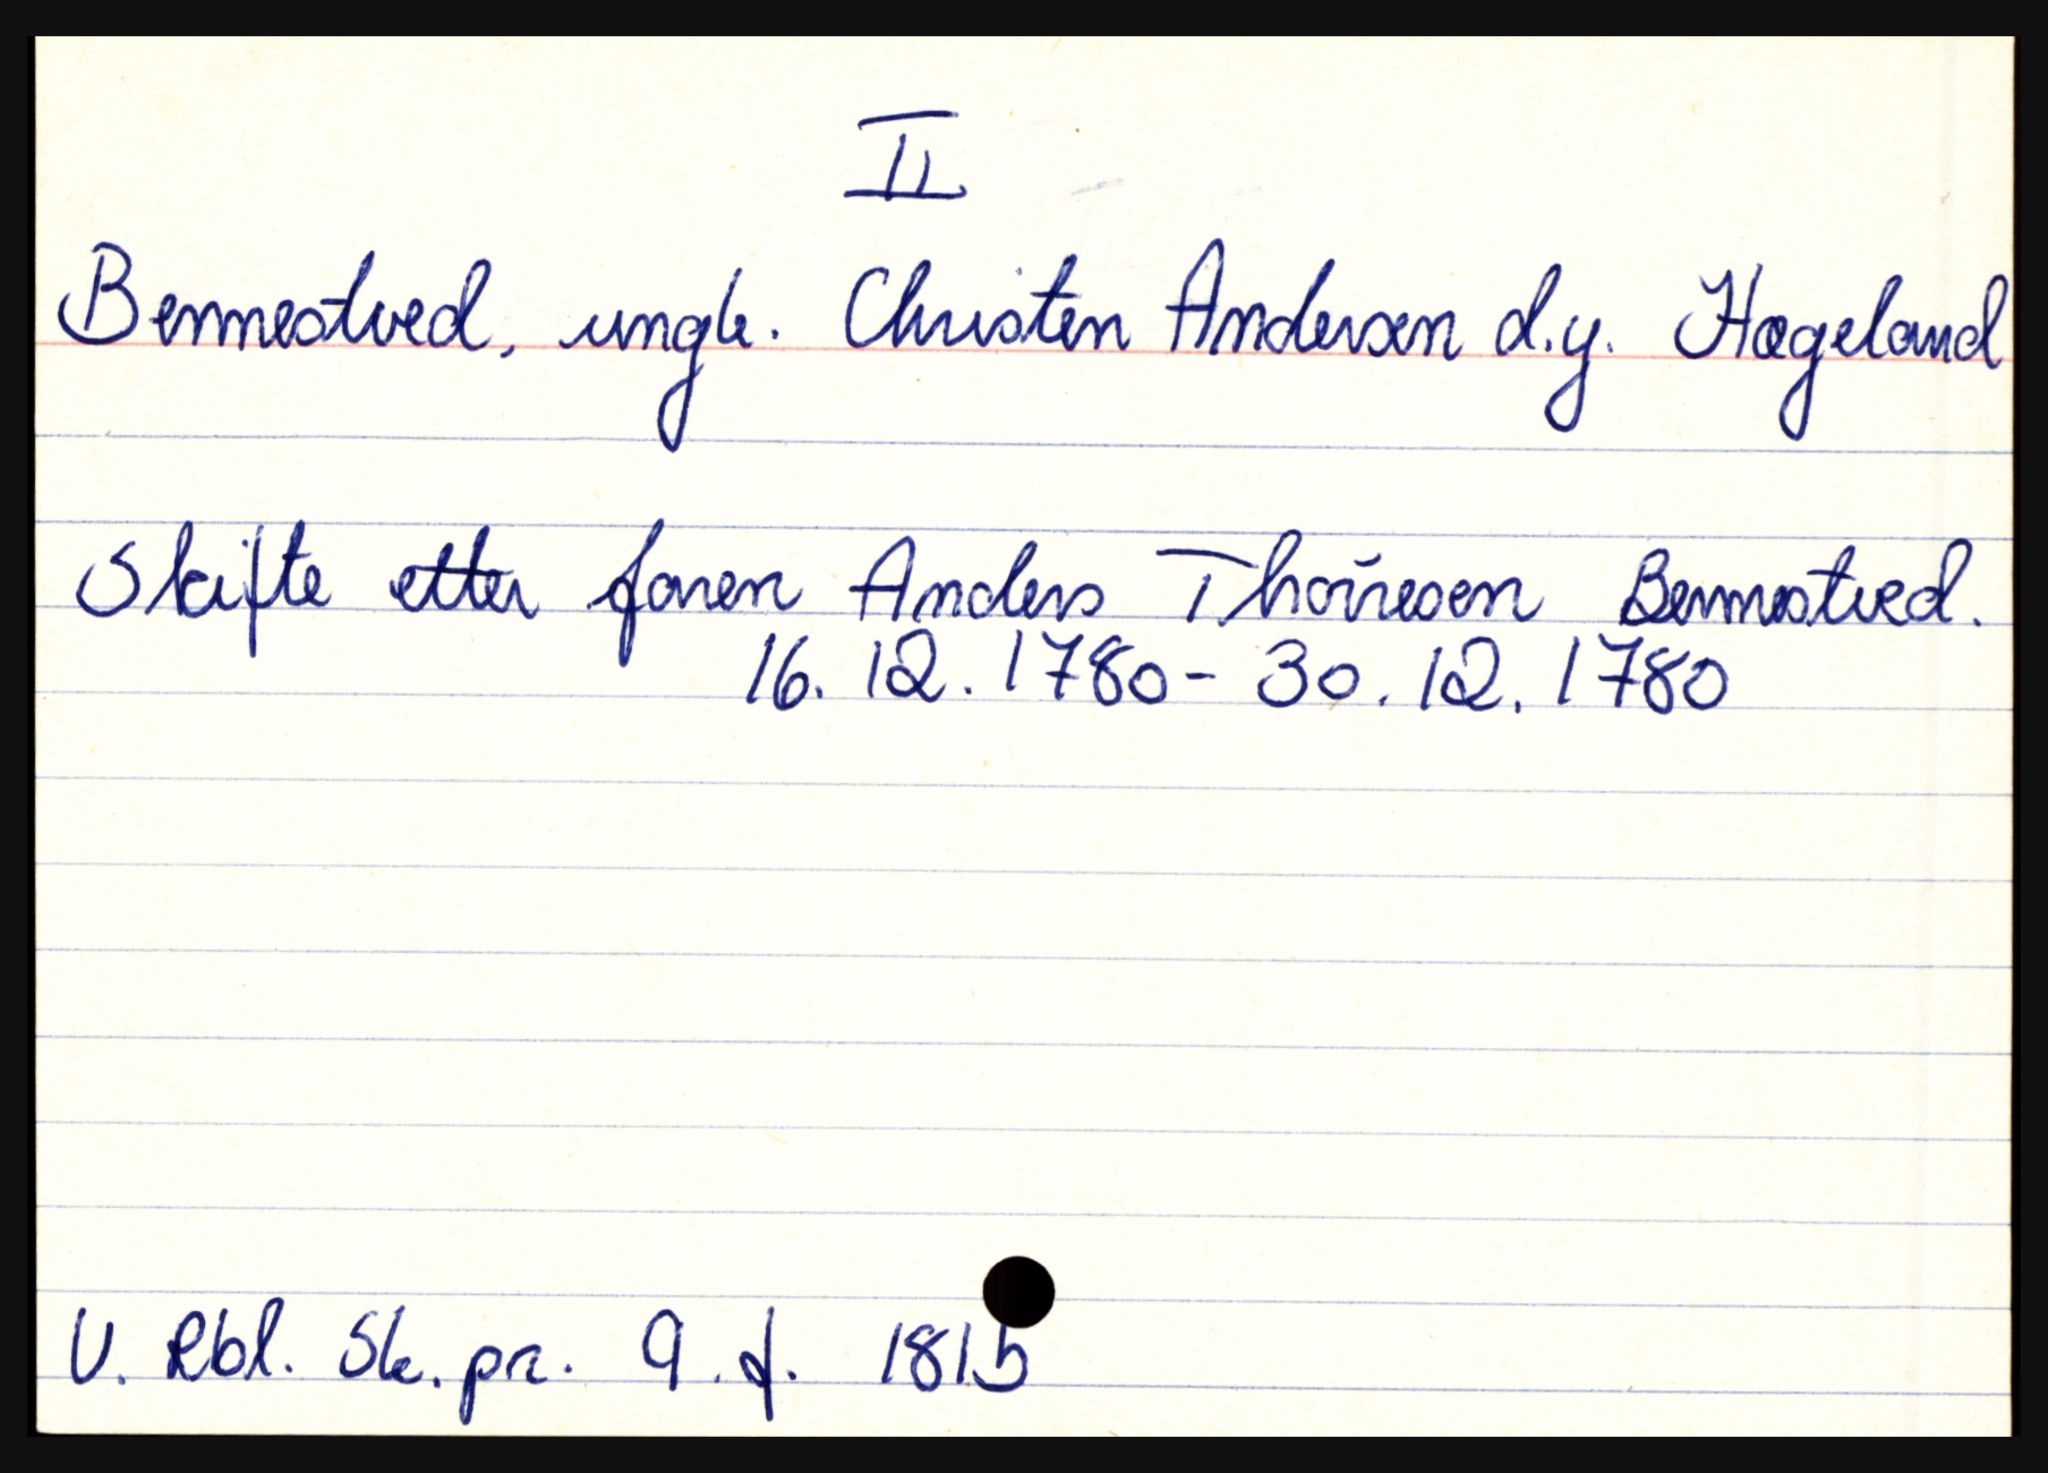 II
Bennestved, ungk. Christen Andersen d.y. Hægeland
Skifte etter faren Anders Thoresen Bennestved.
16. 12. 1780 - 30. 12. 1780
V. Rbl. Sk. pr. 9. f. 181